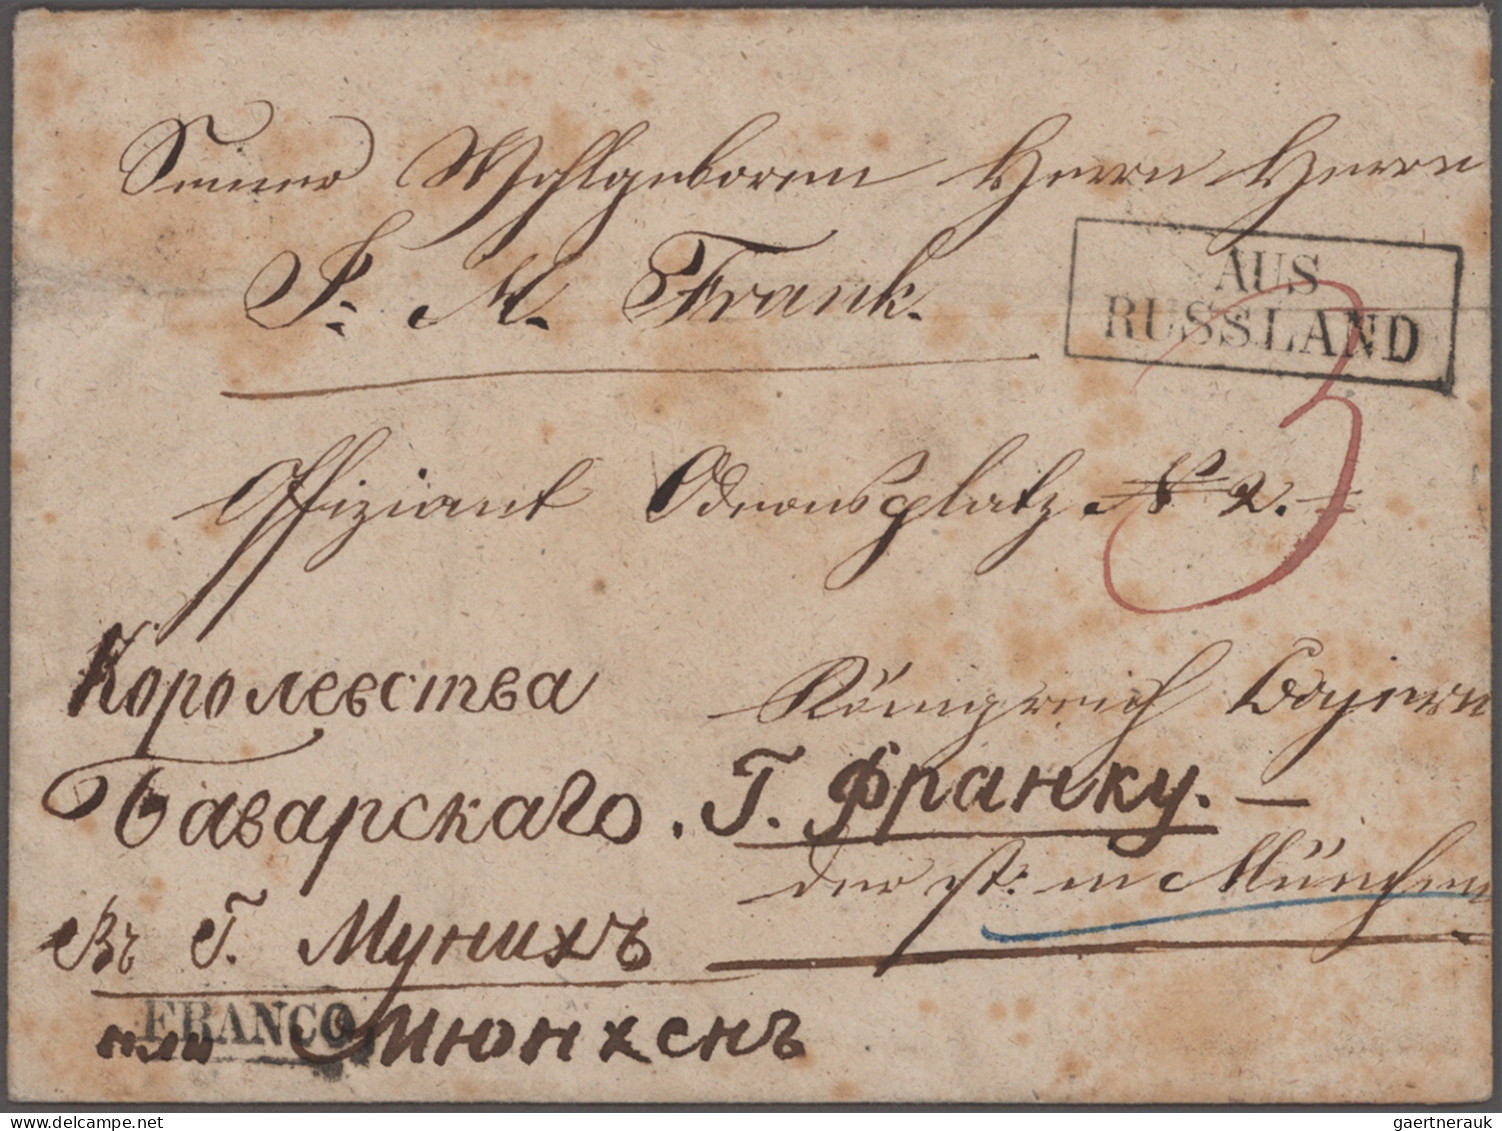 Seiner Wohlgeboren Herrn Herrn
J. M. Frank.
AUS
RUSSLAND
3
Offiziant Odeonsplatz № 2.
Königreich Bayern
Королевства
Баварскаго. Г. Франку. —
der Zt: in München
Въ Г. Мунихъ
FRANCO
или Мюнхенъ
gaertnerauk